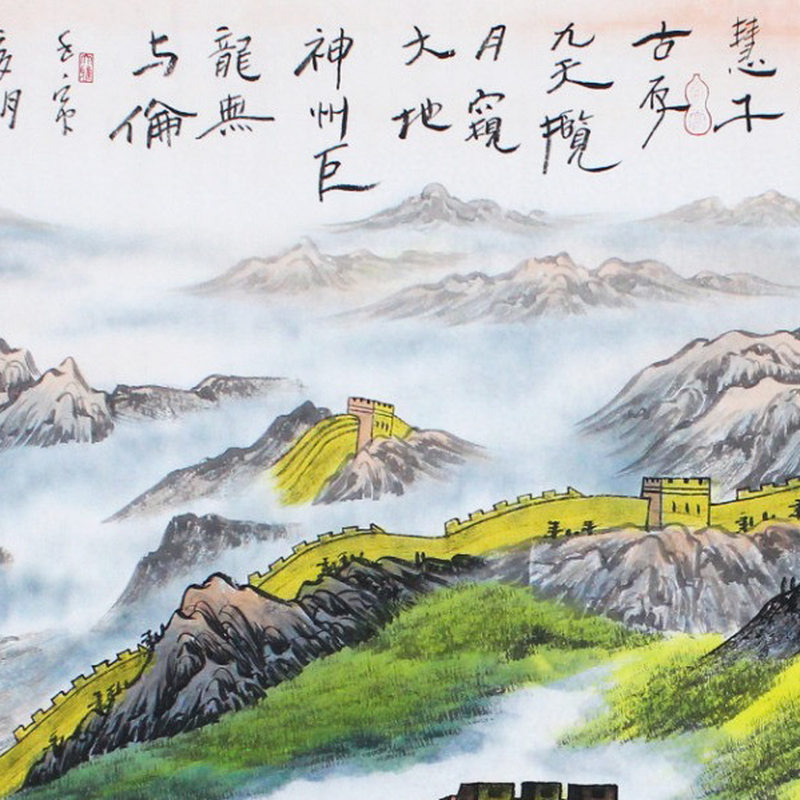 慧千
古存
九天攬
月窺
大地
神州巨
龍無
与倫
壬寅